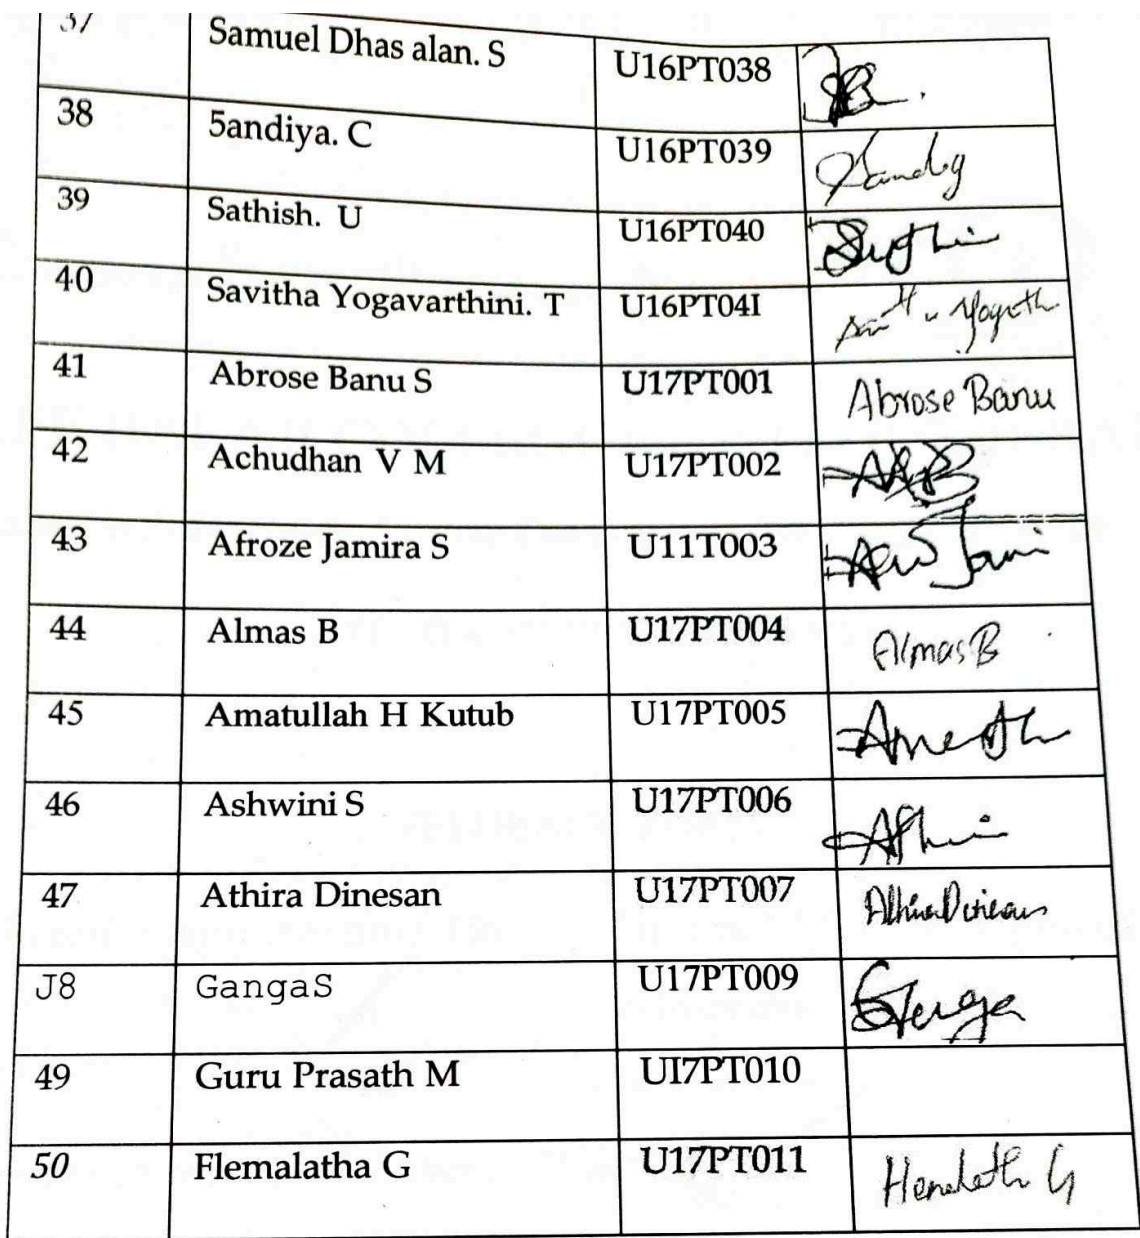 37 Samuel Dhas alan. S U16PT038
38 5andiya. C U16PT039
39 Sathish. U U16PT040
40 Savitha Yogavarthini. T U16PT04I
41 Abrose Banu S U17PT001 Abrose Banu
42 Achudhan V M U17PT002
43 Afroze Jamira S U11T003
44 Almas B U17PT004 Almas B
45 Amatullah H Kutub U17PT005
46 Ashwini S U17PT006
47 Athira Dinesan U17PT007
J8 GangaS U17PT009
49 Guru Prasath M UI7PT010
50 Flemalatha G U17PT011